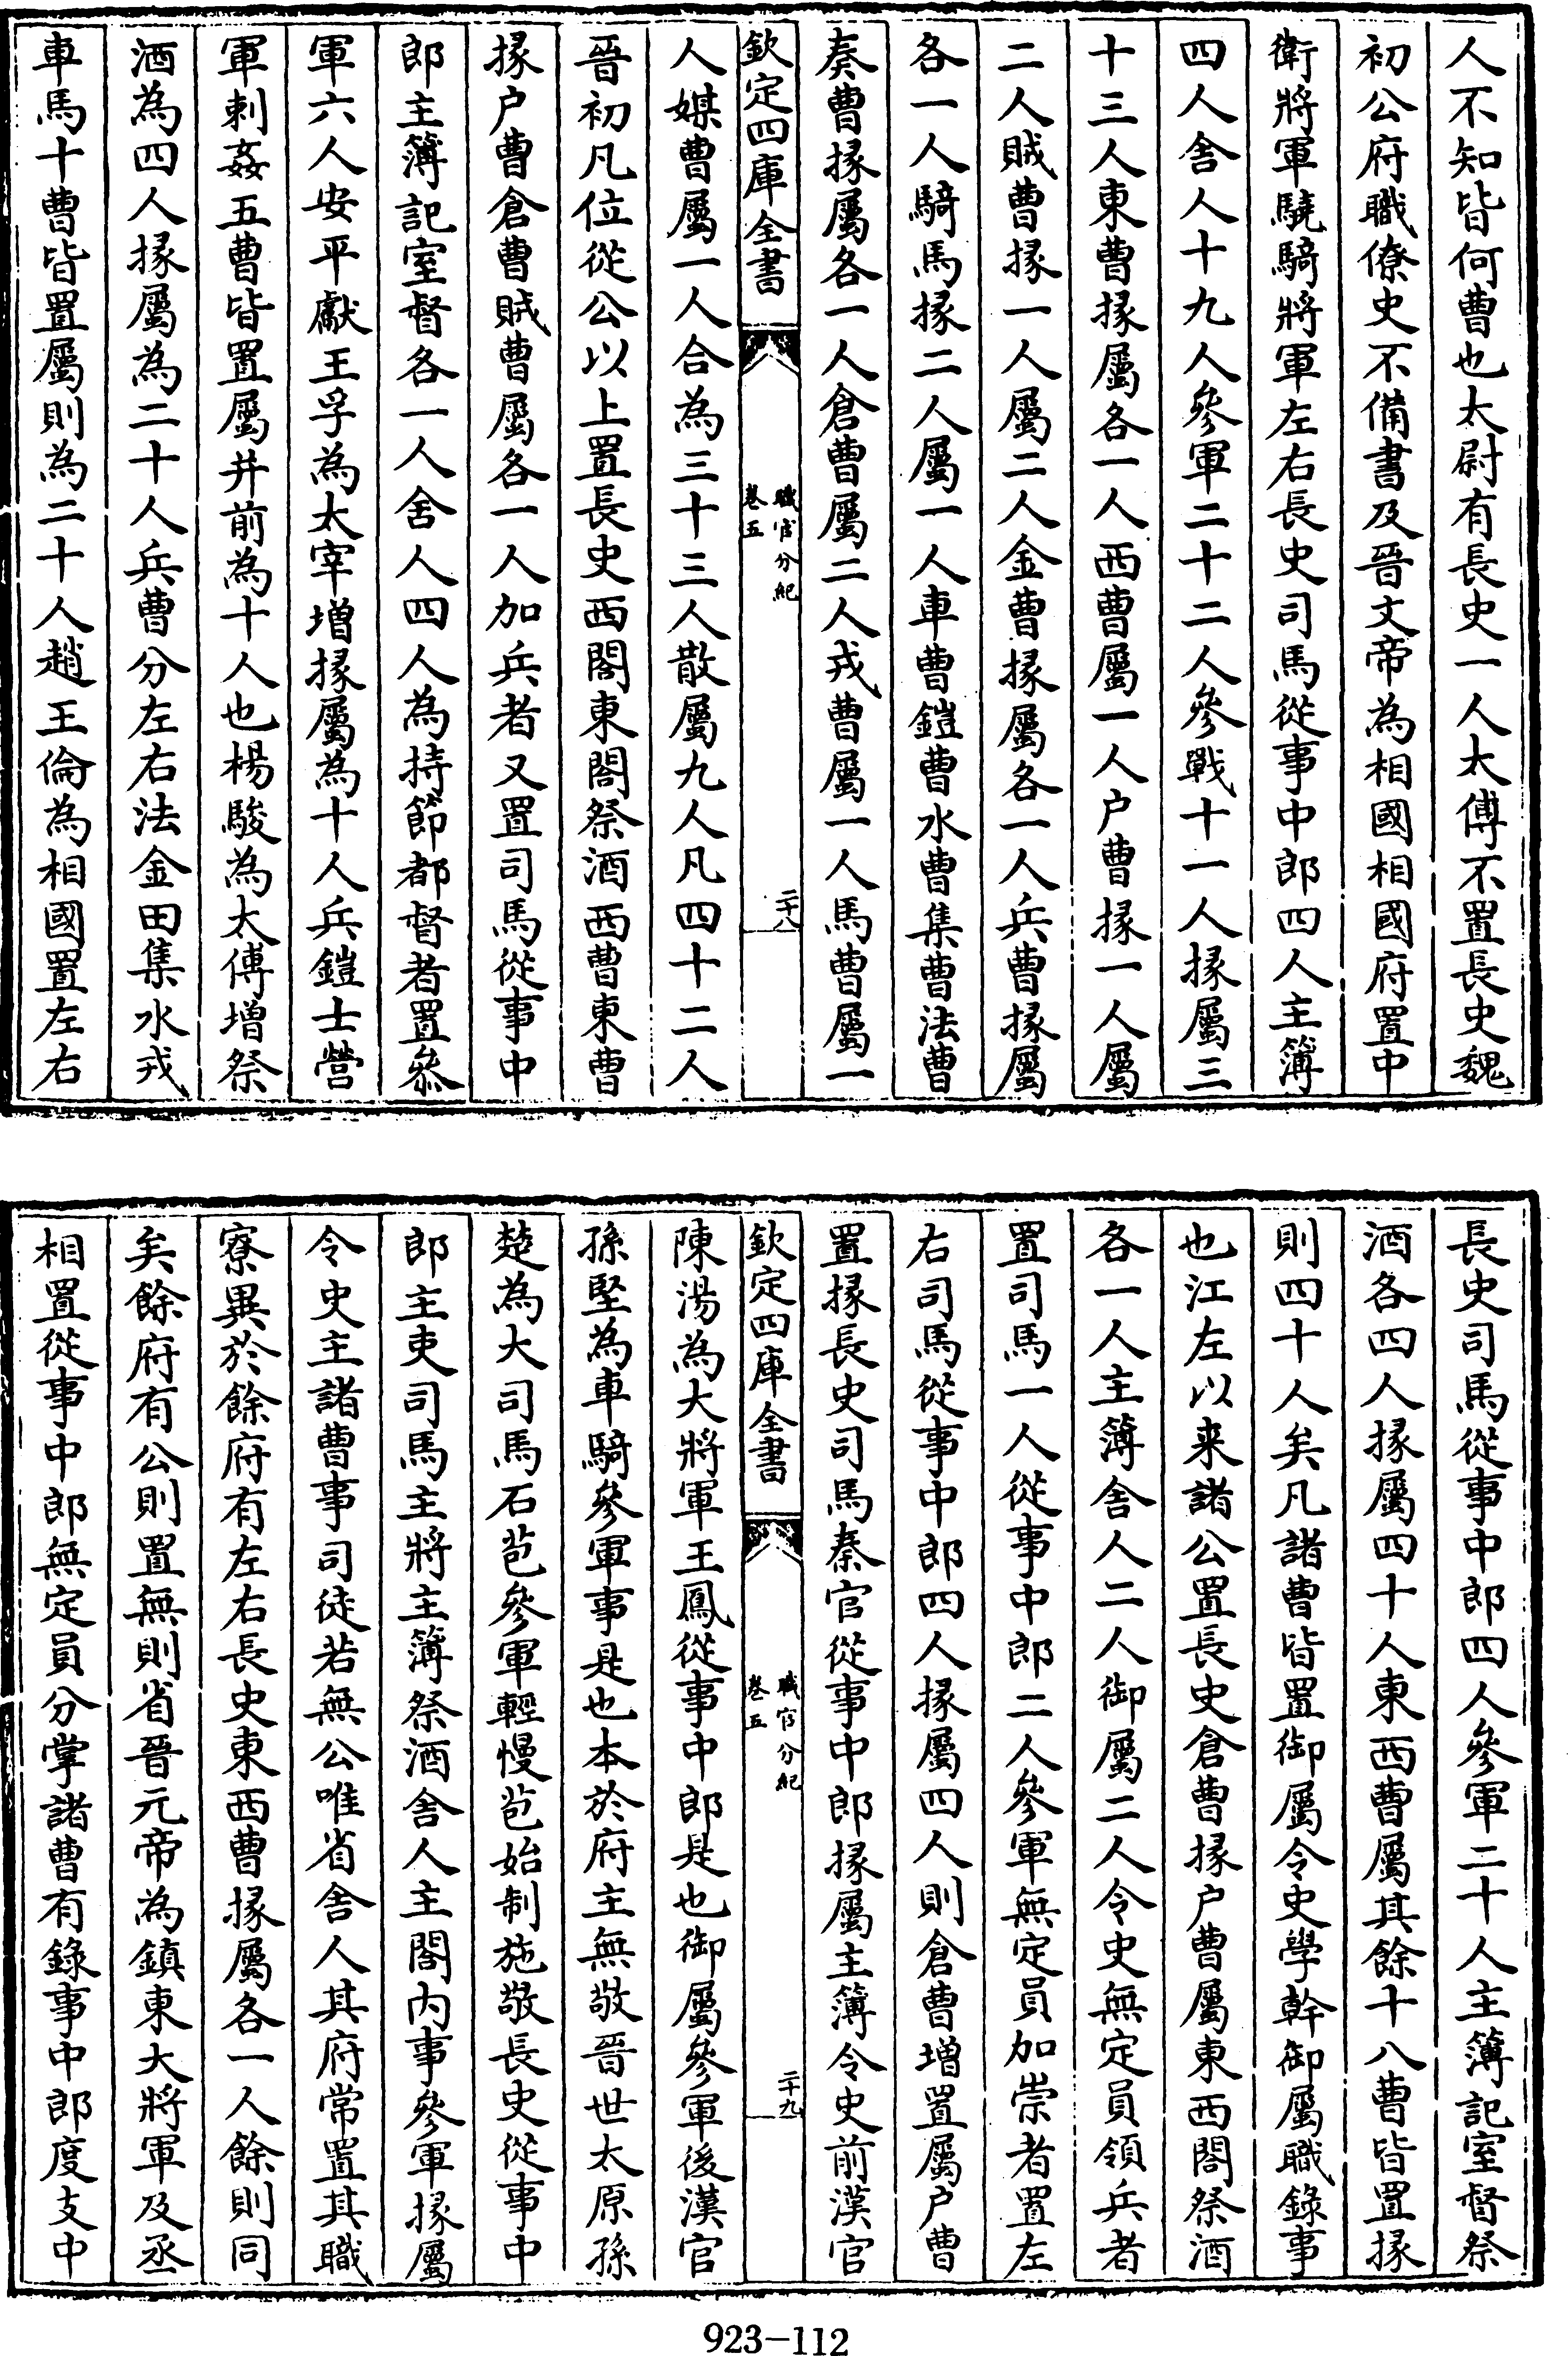 人不知皆何曹也太尉有長史一人太傅不置長史魏
初公府職僚史不備書及晉文帝為相國相國府置中
衛將軍驍騎將軍左右長史司馬從事中郎四人主簿
四人舍人十九人參軍二十二人參戰十一人掾屬三
十三人東曹掾屬各一人西曹屬一人户曹掾一人屬
二人賊曹掾一人屬二人金曹掾屬各一人兵曹掾屬
各一人騎馬掾二人屬一人車曹鎧曹水曹集曹法曹
奏曹掾屬各一人倉曹屬二人戎曹屬一人馬曹屬一
欽定四庫全書
職官分紀
卷五
二十八
人媒曹屬一人合為三十三人散屬九人凡四十二人
晉初凡位從公以上置長史西閤東閤祭酒西曹東曹
掾户曹倉曹賊曹屬各一人加兵者又置司馬從事中
郎主簿記室督各一人舍人四人為持節都督者置叅
軍六人安平獻王孚為太宰增掾屬為十人兵鎧士營
軍刺姦五曹皆置屬并前為十人也楊駿為太傅增祭
酒為四人掾屬為二十人兵曹分左右法金田集水戎
車馬十曹皆置屬則為二十人趙王倫為相國置左右
長史司馬從事中郎四人參軍二十人主簿記室督祭
酒各四人掾屬四十人東西曹屬其餘十八曹皆置掾
則四十人矣凡諸曹皆置御屬令史學幹御屬職錄事
也江左以来諸公置長史倉曹掾户曹屬東西閤祭酒
各一人主簿舍人二人御屬二人令史無定員領兵者
置司馬一人從事中郎二人參軍無定員加崇者置左
右司馬從事中郎四人掾屬四人則倉曹增置屬户曹
置掾長史司馬秦官從事中郎掾屬主簿令史前漢官
欽定四庫全書
職官分紀
卷五
二十九
陳湯為大將軍王鳳從事中郎是也御屬參軍後漢官
孫堅為車騎參軍事是也本於府主無敬晉世太原孫
楚為大司馬石苞參軍輕慢苞始制施敬長史從事中
郎主吏司馬主將主簿祭酒舍人主閤內事參軍掾屬
令史主諸曹事司徒若無公唯省舍人其府常置其職
寮異於餘府有左右長史東西曹掾屬各一人餘則同
矣餘府有公則置無則省晉元帝為鎮東大將軍及丞
相置從事中郎無定員分掌諸曹有錄事中郎度支中
923-112